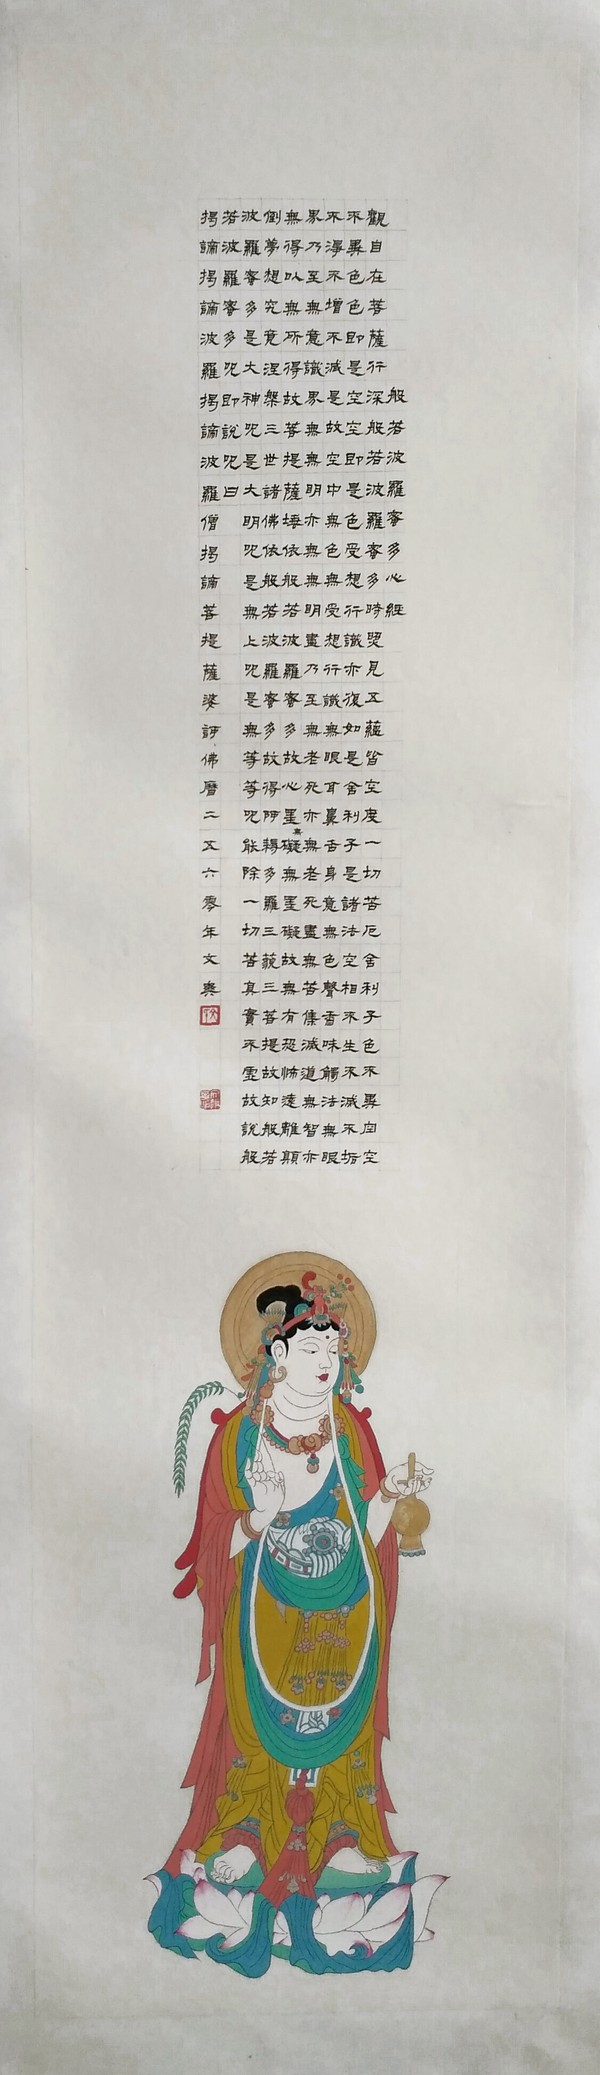 般若波羅蜜多心經
觀自在菩薩行深般若波羅蜜多時照見五蘊皆空度一切苦厄舍利子色不異空空
不異色色即是空空即是色受想行識亦復如是舍利子是諸法空相不生不滅不垢
不淨不增不減是故空中無色無受想行識無眼耳鼻舌身意無色聲香味觸法無眼
界乃至無意識界無無明亦無無明盡乃至無老死亦無老死盡無苦集滅道無智亦
無得以無所得故菩提薩埵依般若波羅蜜多故心無罣礙無罣礙故無有恐怖遠離顛
倒夢想究竟涅槃三世諸佛依般若波羅蜜多故得阿耨多羅三藐三菩提故知般若
波羅蜜多是大神咒是大明咒是無上咒是無等等咒能除一切苦真實不虛故說般
若波羅蜜多咒即說咒曰
揭諦揭諦波羅揭諦波羅僧揭諦菩提薩婆訶佛曆二五六零年文